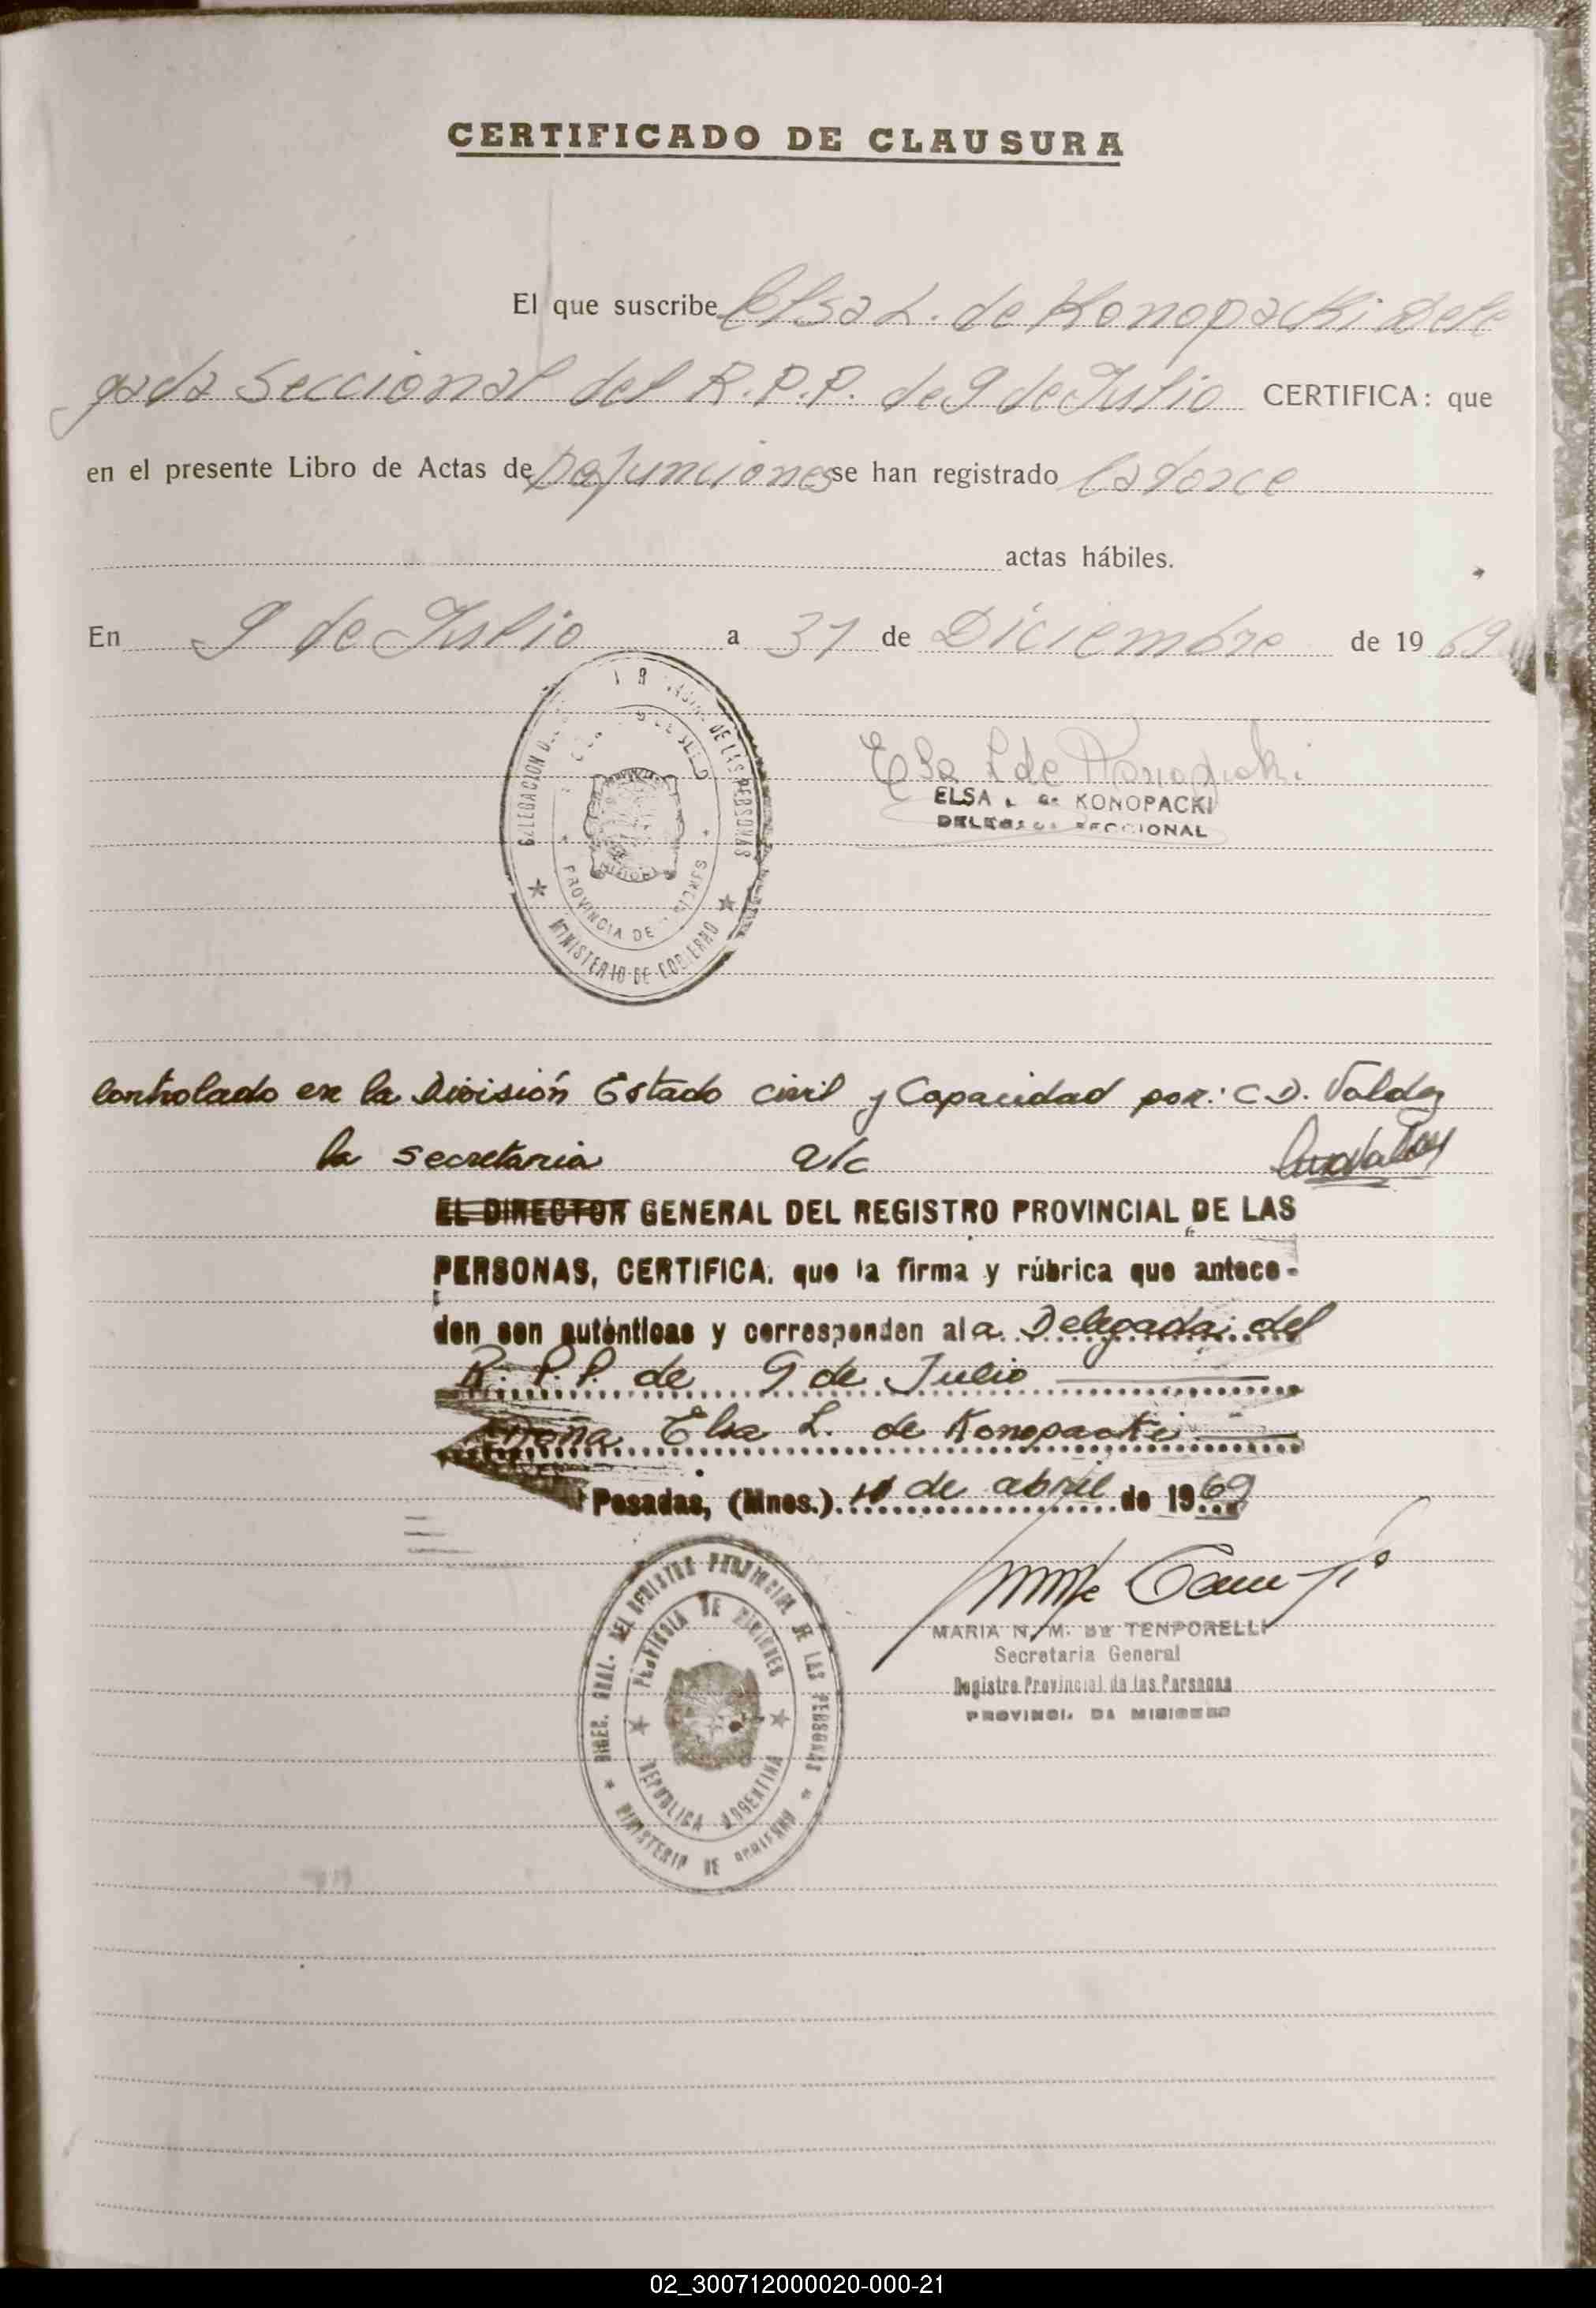 CERTIFICADO DE CLAUSURA
El que suscribe Elsa L. de Konopacki Dele
gada Seccional del R.P.P. de 9 de Julio CERTIFICA: que
en el presente Libro de Actas de Defunciones se han registrado Catorce
actas hábiles.
En 9 de Julio a 31 de Diciembre de 19 69
DE LAS PERSONAS
PROVINCIA DE
MINISTERIO DE GOBIERNO
Elsa L de Konopacki
ELSA L. de KONOPACKI
SECCIONAL
Controlado en la División Estado Civil y Capacidad por: C.D. Valdez
la secretaria a/c
EL DIRECTOR GENERAL DEL REGISTRO PROVINCIAL DE LAS
PERSONAS, CERTIFICA, que la firma y rúbrica que antece-
den son auténticas y corresponden al a Delegada del
R. P.P. de 9 de Julio
Doña Elsa L. de Konopacki
Posadas, (Mnes.) 10 de abril de 1969
DIREC. GRAL. DEL REGISTRO PROVINCIAL DE LAS PERSONAS
PROVINCIA DE MISIONES
REPUBLICA ARGENTINA
MINISTERIO DE GOBIERNO
MARIA N. M. DE TENPORELLI
Secretaria General
Registro Provincial de las Personas
PROVINCIA DE MISIONES
02_300712000020-000-21